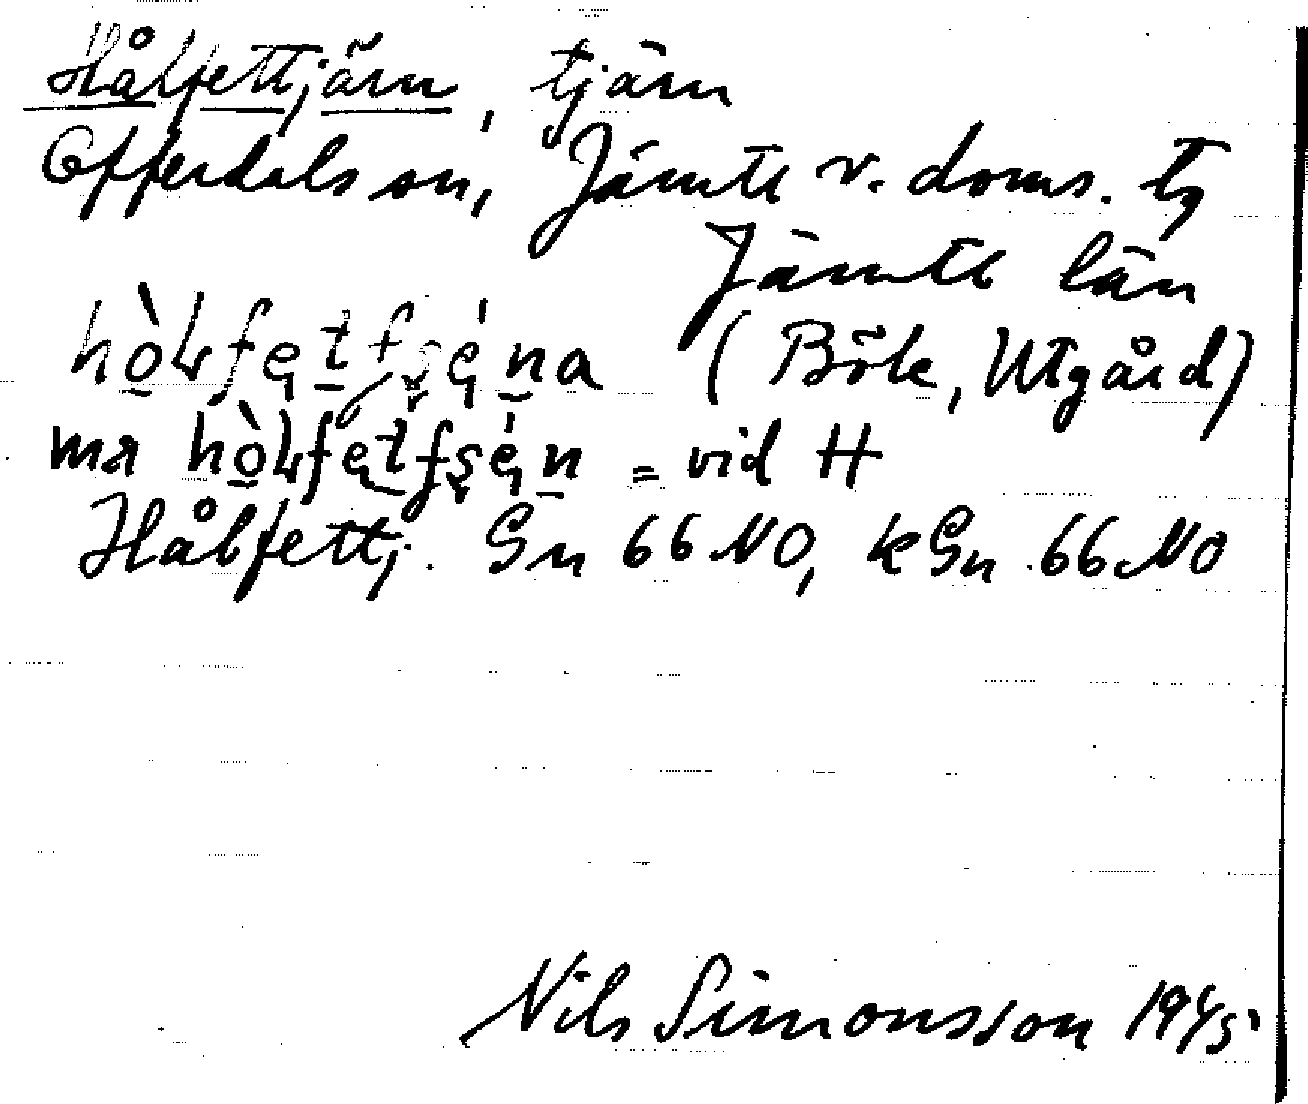 Hålfettjärn, tjärn
Offerdals sn, Jämtl v. doms. tg
Jämtl län
(Böle, Utgård)
ma = vid H
Hålfettj. Gn 66 NO, kGn 66 NO
Nils Simonsson 1945